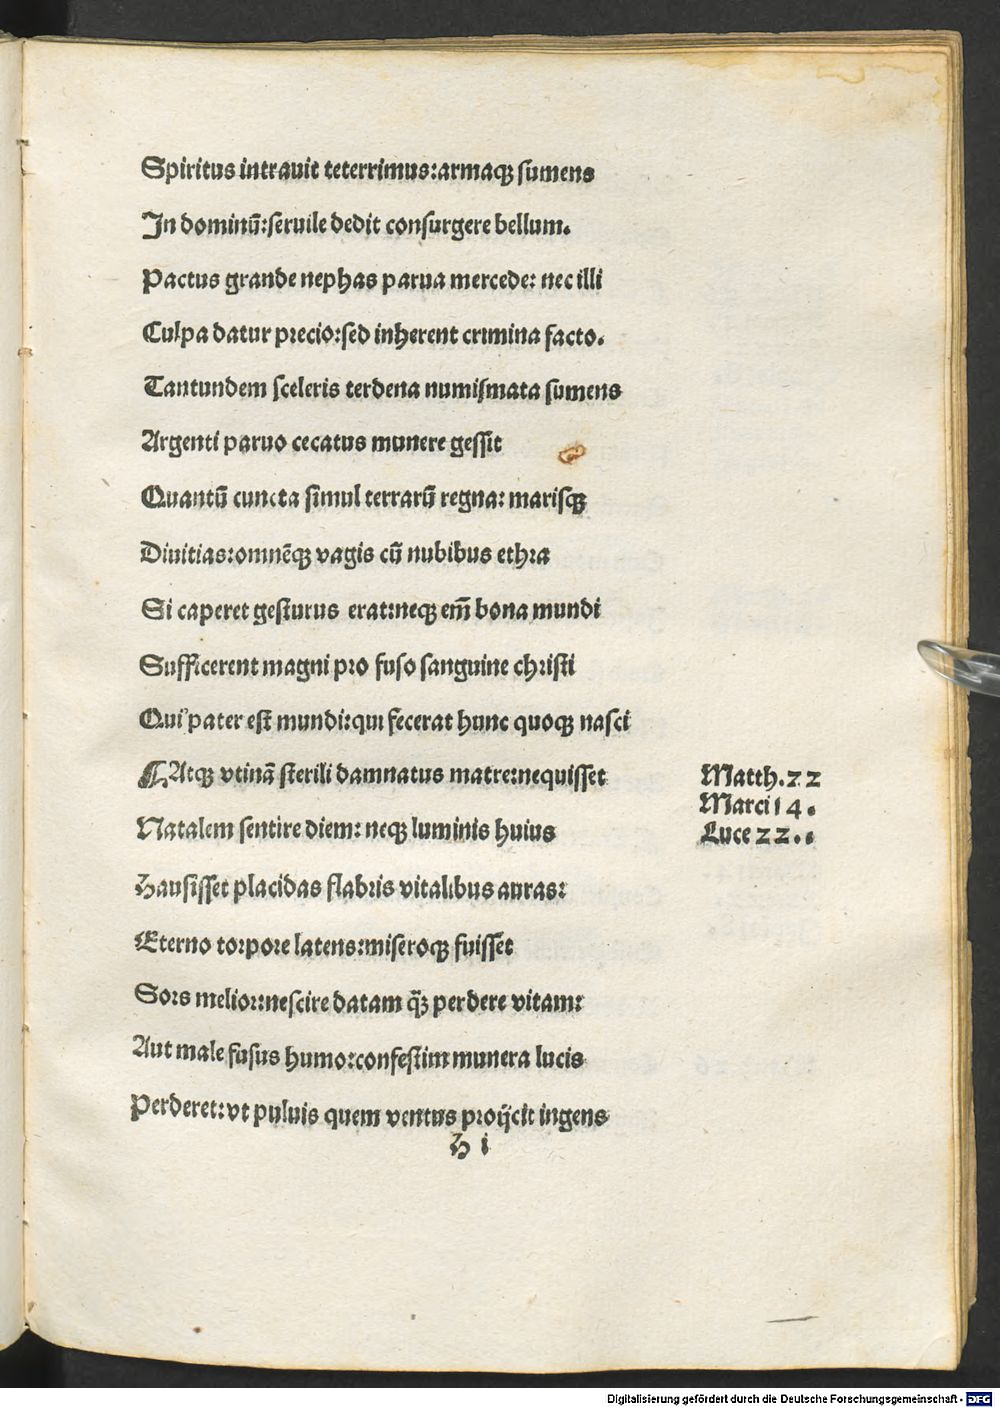 Spiritus intrauit teterrimus:armaqꝫ sumens
In dominū:seruile dedit consurgere bellum.
Pactus grande nephas parua mercede: nec illi
Culpa datur precio:sed inherent crimina facto.
Tantundem sceleris terdena numismata sumens
Argenti paruo cecatus munere gessit
Quantū cuncta simul terrarū regna: marisqꝫ
Diuitias:omnēqꝫ vagis cū nubibus ethra
Si caperet gesturus erat:neqꝫ em̄ bona mundi
Sufficerent magni pro fuso sanguine christi
Qui pater est mundi:qui fecerat hunc quoqꝫ nasci
¶Atqꝫ vtinā sterili damnatus matre:nequisset
Matth.22
Marci 14.
Luce 22..
Natalem sentire diem: neqꝫ luminis huius
Hausisset placidas flabris vitalibus auras:
Eterno torpore latens:miseroqꝫ fuisset
Sors melior:nescire datam q̄ꝫ perdere vitam:
Aut male fusus humo:confestim munera lucis
Perderet:vt puluis quem ventus proijcit ingens
H i
Digitalisierung gefördert durch die Deutsche Forschungsgemeinschaft - DFG